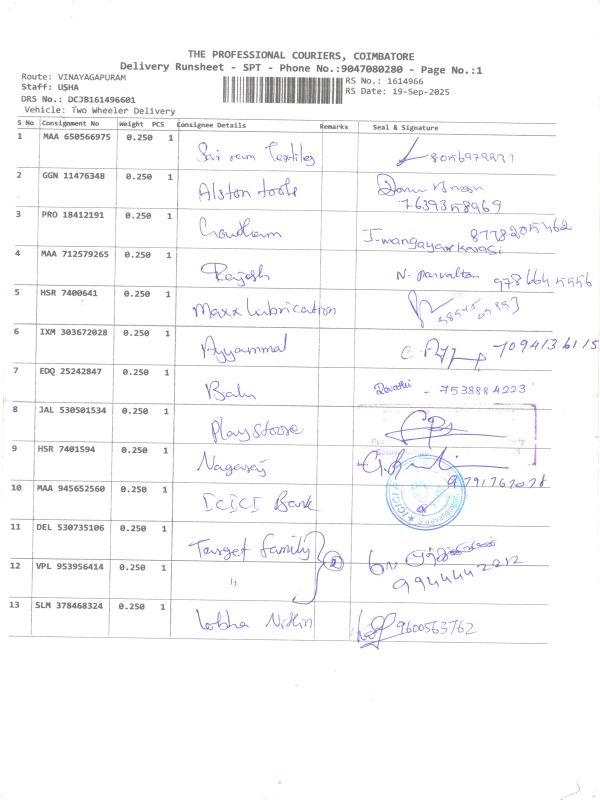 THE PROFESSIONAL COURIERS, COIMBATORE
Delivery Runsheet - SPT - Phone No.:9047080280 - Page No.:1
Route: VINAYAGAPURAM
RS No.: 1614966
Staff: USHA
RS Date: 19-Sep-2025
DRS No.: DCJB161496601
Vehicle: Two Wheeler Delivery
S No Consignment No Weight PCS Consignee Details Remarks Seal & Signature
1 MAA 650566975 0.250 1 Sri ram Textiles
2 GGN 11476348 0.250 1 Alston tools
7639358969
3 PRO 18412191 0.250 1 Goudham J-mangayarkarasi 8778205462
4 MAA 712579265 0.250 1 Rajesh N- parvathm
5 HSR 7400641 0.250 1 Maxx Lubrication
6 IXM 303672028 0.250 1 Ayyammal 7094136115
7 EDQ 25242847 0.250 1 Balu Revathi - 7538884223
8 JAL 530501534 0.250 1 Play store
9 HSR 7401594 0.250 1 Nagaraj
9791762078
10 MAA 945652560 0.250 1 ICICI Bank
11 DEL 530735106 0.250 1 Target family 2
9944442212
12 VPL 953956414 0.250 1 "
13 SLM 378468324 0.250 1 Lobha Nithin 9600563762